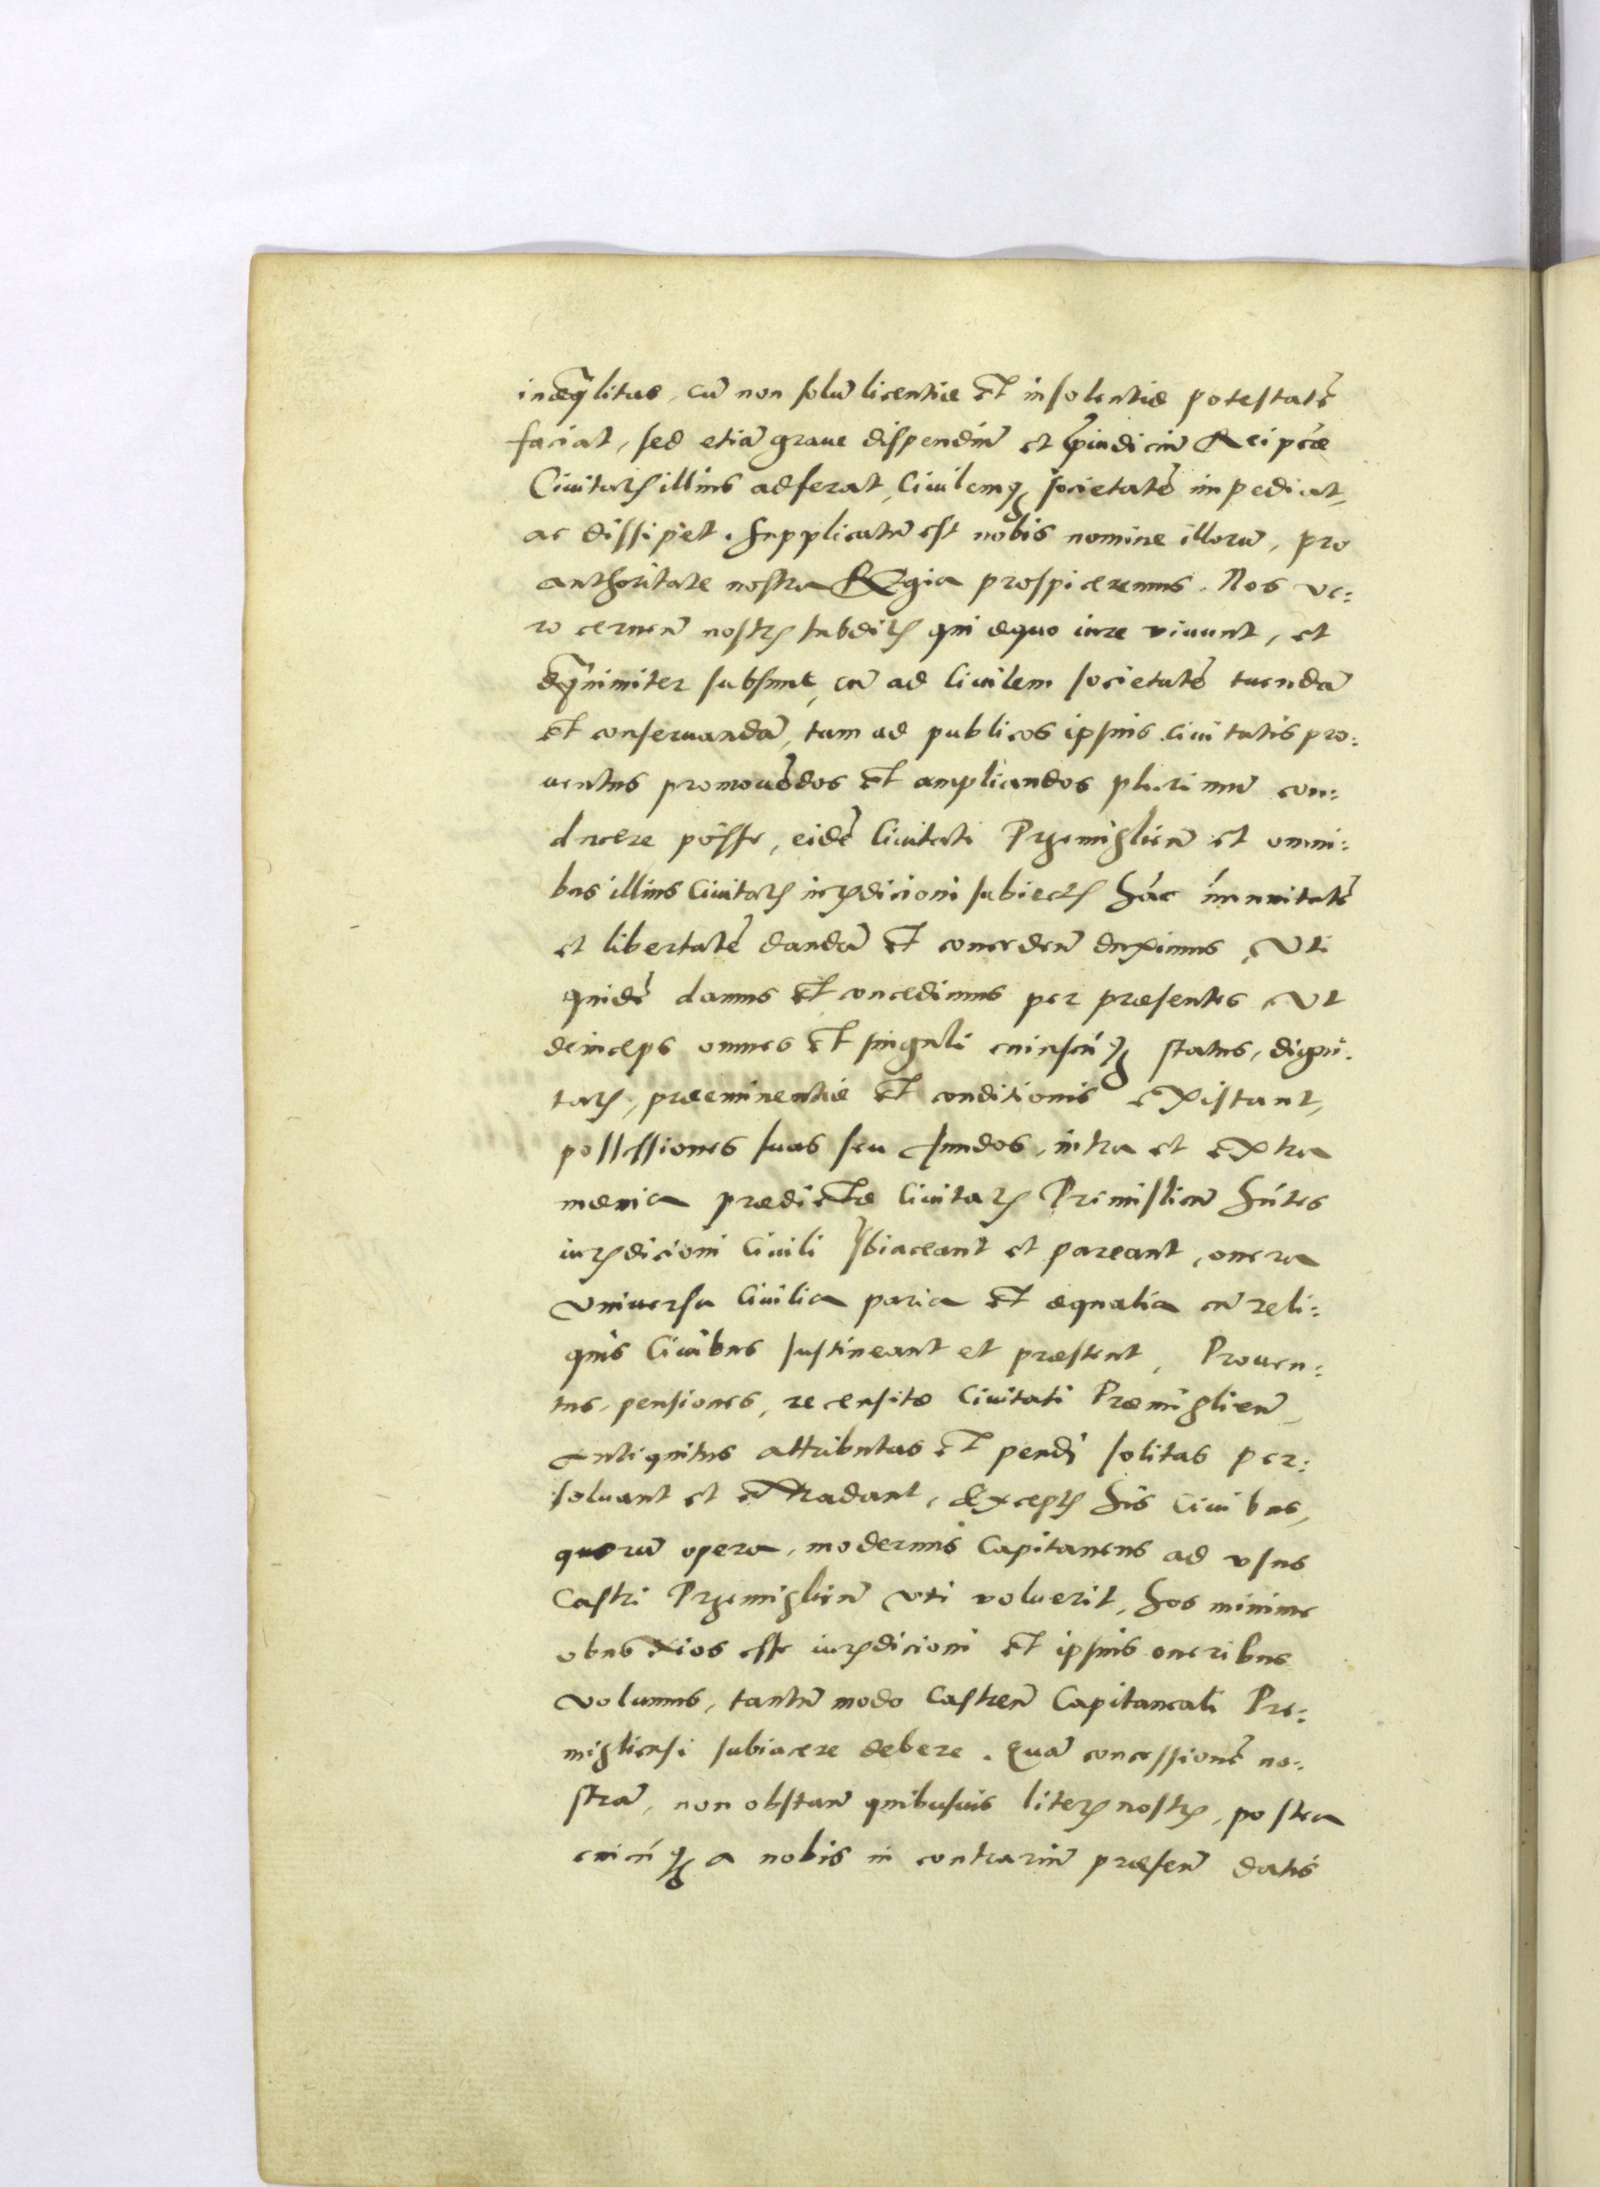 inæq̃litas, cũ non solũ licentiæ et insolentiæ potestatẽ
faciat, sed etiã graue dispendiũ et p̃iudiciũ Reipcæ
Ciuitatꝭ illius adferat, Ciuilemqꝫ societatẽ impediat,
ac dissipet. Supplicatũ est nobis nomine illorũ, pro
authoritate nostra Regia prospiceremus. Nos ve:
ro cernen̄ nostrꝭ subditꝭ qui æquo iure viuunt, et
subsunt, cũ ad Ciuilem societatẽ tuendã
et conseruandã, tum ad publicos ipsius Ciuitatis pro:
uentus promouẽdos et ampliandos plurimũ con:
ducere posse, eidẽ Ciuitati Przemislien̄ et omni:
bus illius Ciuitatꝭ iurꝭdicioni subiectꝭ hác ímunitatẽ
et libertatẽ dandã et conceden̄ duximus, Uti
quidẽ damus et concedimus per præsentes, Ut
deinceps omnes et singuli cuiuscũqꝫ status, digni:
tatꝭ, præeminentiæ et conditionis existant,
possessiones suas seu fundos, intra et extra
mænia prædictæ Ciuitatꝭ Premislien̄ hñtes
iurꝭdicioni Ciuili sbiaceant et pareant, onera
vniuersa Ciuilia paria et æqualia cũ reli:
quis Ciuibus sustineant et præstent, Prouen:
tus, pensiones, recensitæ Ciuitati Præmislien̄,
antiquitus attributas et pendi solitas per:
soluant et extradant, Exceptꝭ his Ciuibus,
quorũ opera, modernus Capitaneus ad vsus
Castri Przemislien̄ vti voluerit, hos minime
obnoxios esse iurꝭdicioni et ipsius oneribus
volumus, tantũmodo Castren̄ Capitaneali Pre:
misliensi subiacere debere. Quã concessionẽ no:
strã, non obstan̄ quibusuis literꝭ nostrꝭ, postea
cuicũqꝫ a nobis in contrariũ præsen̄ datis